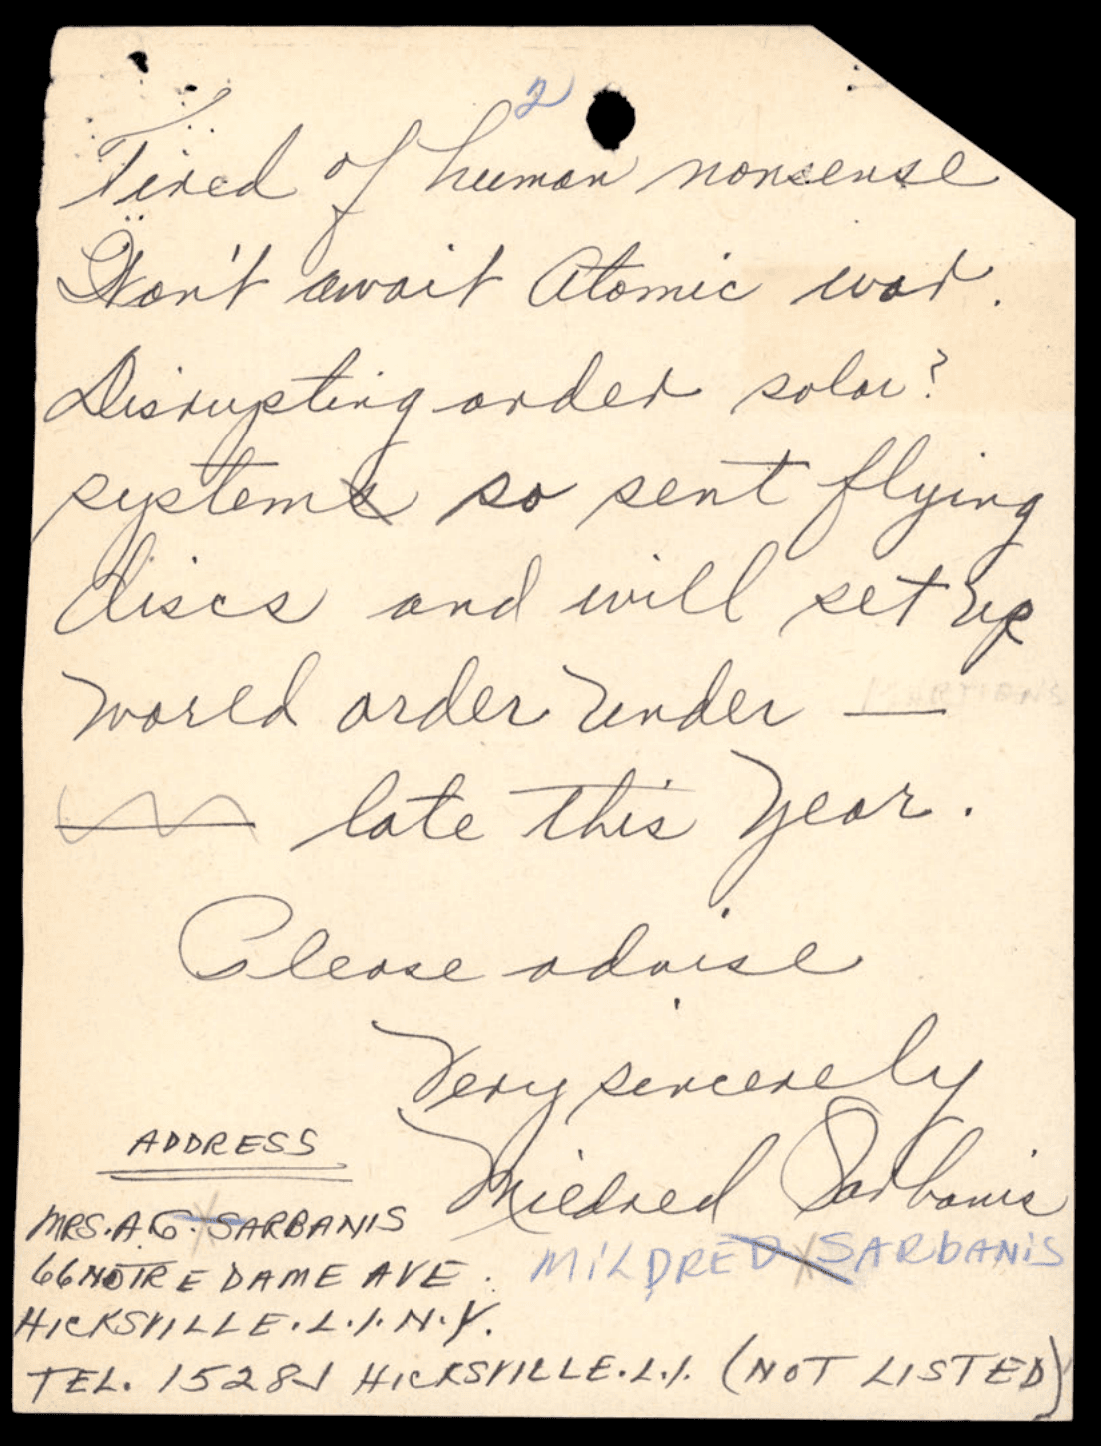 2
Tired of human nonsense
Won't await Atomic war.
Disrupting order solar?
systems so sent flying
discs and will set up
World order under —
MARTIANS
late this Year.
Please advise
Very sincerely
Mildred Sarbanis
ADDRESS
MRS. A. G. SARBANIS
MILDRED SARBANIS
66 NOTRE DAME AVE.
HICKSVILLE. L. I. N. Y.
TEL. 15281 HICKSVILLE. L. I. (NOT LISTED)